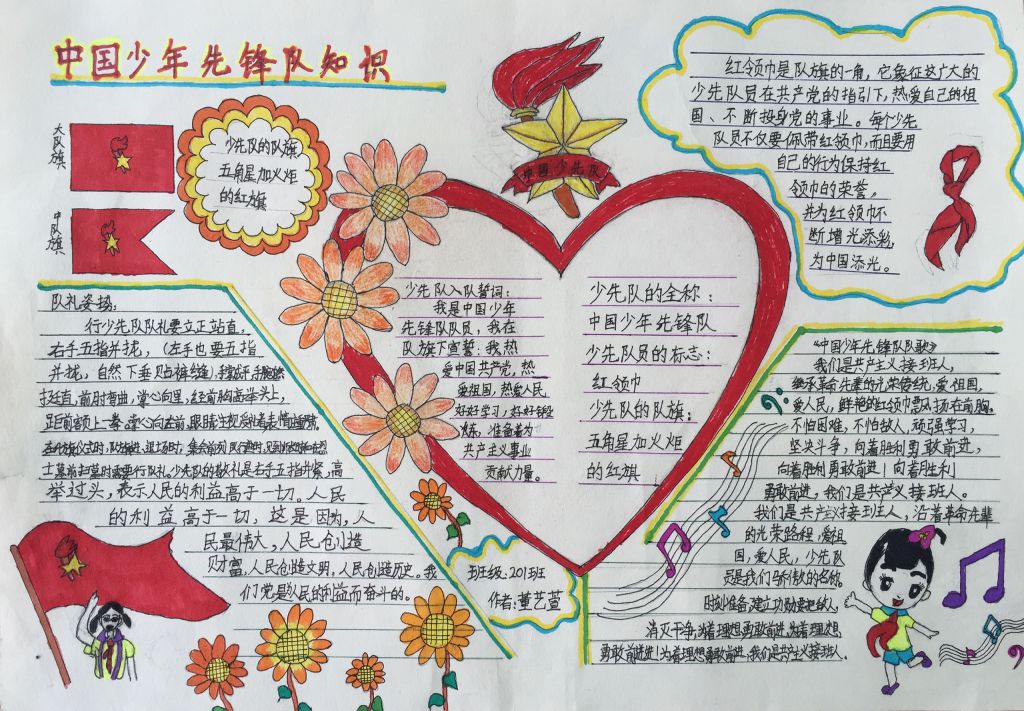 中国少年先锋队知识
大队旗
中队旗
少先队的队旗
五角星加火炬
的红旗
中国少先队
红领巾是队旗的一角，它象征这广大的
少先队员在共产党的指引下，热爱自己的祖
国、不断投身党的事业。每个少先
队员不仅要佩带红领巾，而且要用
自己的行为保持红
领巾的荣誉，
并为红领巾不
断增光添彩，
为中国添光。
队礼姿势：
行少先队队礼要立正站直，
右手五指并拢，（左手也要五指
并拢，自然下垂贴裤缝），
挺直，前肘弯曲，掌心向里，经前胸高举头上，
距前额上一拳，掌心向左前，眼睛注视受礼者
士墓前扫墓时需要行队礼少先队的敬礼是右手五指并紧，高
举过头，表示人民的利益高于一切。人民
的利益高于一切，这是因为，人
民最伟大，人民创造
财富，人民创造文明，人民创造历史。我
们党是以人民的利益而奋斗的。
少先队入队誓词：
我是中国少年
先锋队队员，我在
队旗下宣誓：我热
爱中国共产党，热
爱祖国，热爱人民
好好学习，好好锻
炼，准备着为
共产主义事业
贡献力量。
少先队的全称：
中国少年先锋队
少先队员的标志：
红领巾
少先队的队旗：
五角星加火火炬
的红旗
班级：201班
作者：董艺萱
《中国少年先锋队队歌》
我们是共产主义接班人，
继承革命先辈的光荣传统，爱祖国，
爱人民，鲜艳的红领巾飘扬在前胸。
不怕困难，不怕敌人，顽强学习，
坚决斗争，向着胜利勇敢前进，
向着胜利勇敢前进！向着胜利
勇敢前进，我们是共产主义接班人。
我们是共产主义接班人，沿着革命先辈
的光荣路程，爱祖
国，爱人民，少先队
员是我们骄傲的名称。
时刻准备，建立功勋要把敌人，
消灭干净，为着理想勇敢前进，为着理想
勇敢前进进！为着理想勇敢前进，我们是共产主义接班人。